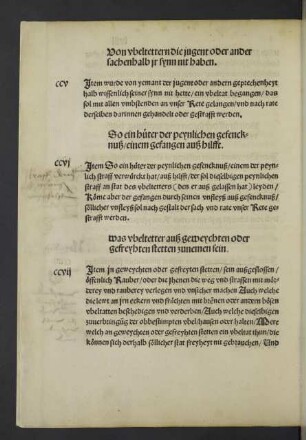 Von vbeltettern die jugent oder ander
sachenhalb jr synn nit haben.
ccv Item wurde von yemant der jugent oder andern geprechenheyt
halb wissenlich seiner synn nit hette / ein vbeltat begangen / das
sol mit allen vmbstenden an vnser Rete gelangen / vnd nach rate
derselben darinnen gehandelt oder gestrafft werden.
So ein hüter der peynlichen gefenck-
nuß / einem gefangen auß hilfft.
ccvj Item So ein hüter der peynlichen gefencknuß / einem der peyn
lich straff verwürckt hat / auß hilfft / der sol dieselbigen peynlichen
straff an stat des vbeltetters (den er auß gelassen hat) leyden /
Köme aber der gefangen durch seinen vnfleyß auß gefencknuß /
söllicher vnfleyß sol nach gestalt der sach vnd rate vnser Rete ge-
strafft werden.
was vbeltetter auß geweychten oder
gefreyhten stetten zunemen sein.
ccvij Item in geweychten oder gefreyten stetten / sein außgeslossen /
öffenlich Rauber / oder die jhenen die weg vnd strassen mit mör-
derey vnd rauberey verlegen vnd vnsicher machen Auch welche
die lewt an jrn eckern vnd früchten mit brönen oder andern bösen
vbeltatten beschedigen vnd verderben / Auch welche dieselbigen
zuuerbringüg der obbestimpten vbel hausen oder halten / Mere
welch an geweychten oder gefreyhten stetten ein vbeltat thun / die
können sich derhalb söllicher stat freyheyt nit gebrauchen / Vnd